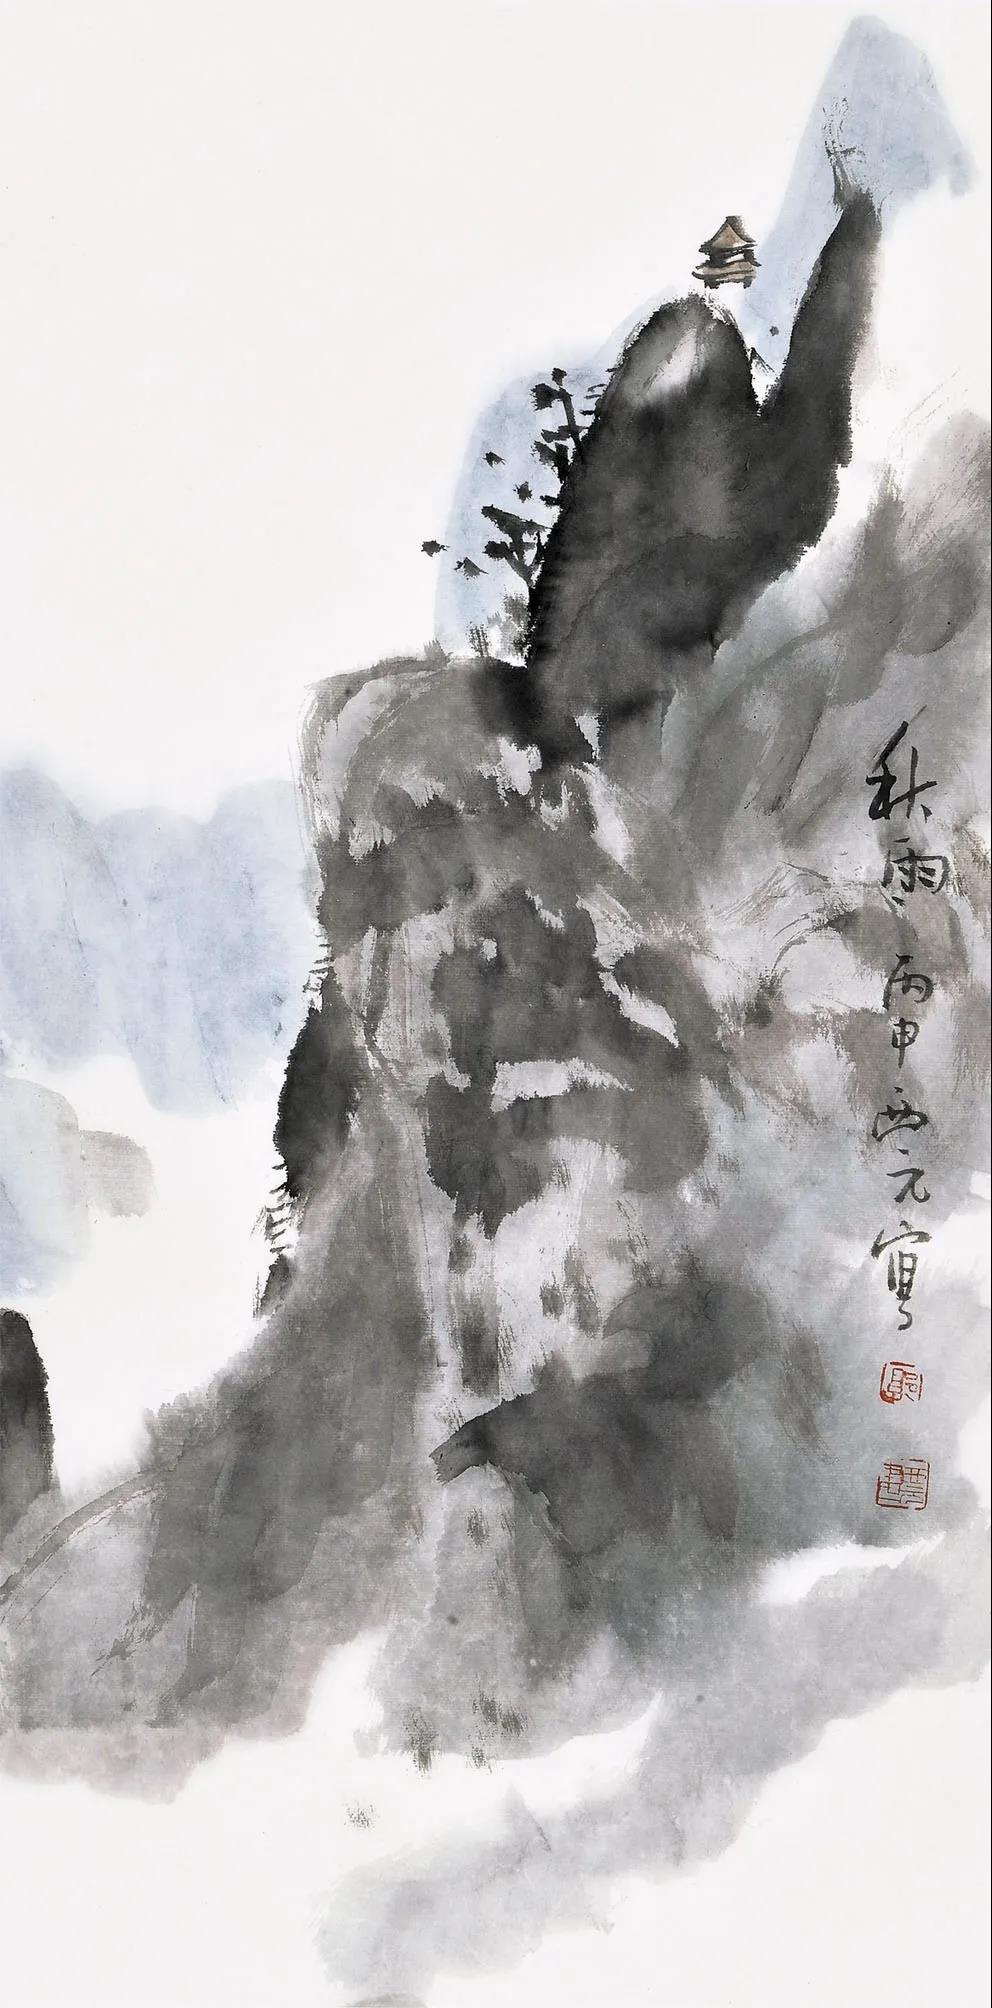 秋雨 丙申 西元寫